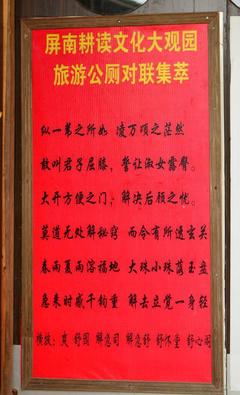 屏南耕读文化大观园
旅游公厕对联集萃
纵一苇之所如 凌万顷之茫然
敢叫君子屈膝，誓让淑女露臀。
大开方便之门，解决后顾之忧。
莫道无处解秘窍 而今有所通玄关
春雨夏雨溶福地 大珠小珠落玉盘
急来时感千钧重 解去立觉一身轻
横披：爽 舒园 解急司 解急舒 舒怀堂 舒心阁